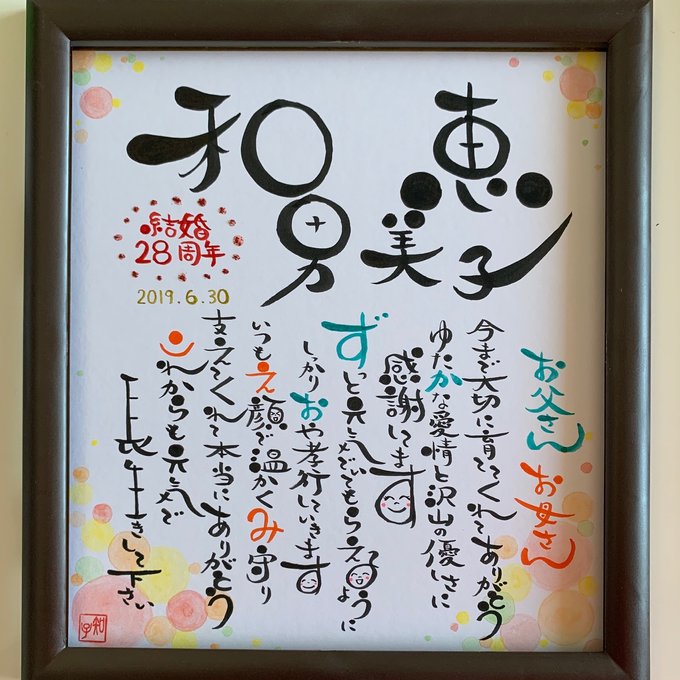 恵美子
和男
結婚
28周年
2019.6.30
お父さん
お母さん
今まで大切に育ててくれてありがとう
ゆたかな愛情と沢山の優しさに
感謝してます
ずっと元気でいてもらえるように
しっかりおや孝行していきます
いつもえ顔で温かくみ守り
支えてくれて本当にありがとう
これからも元気で
長生きして下さい